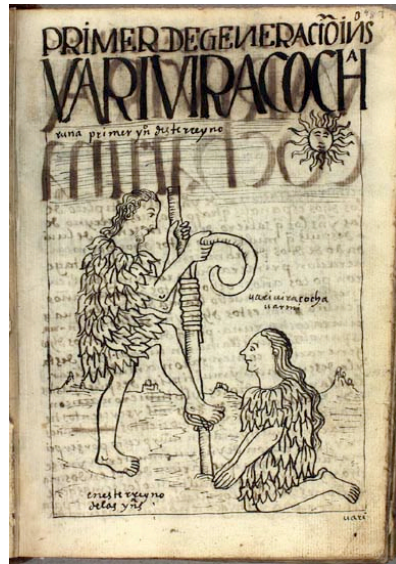 PRIMER DE GENERACIÕ INS
VARIVIRACOCHA
runa primer yno deste rreyno
uari uiracocha
uarmi
en este rreyno
de las yns
uari